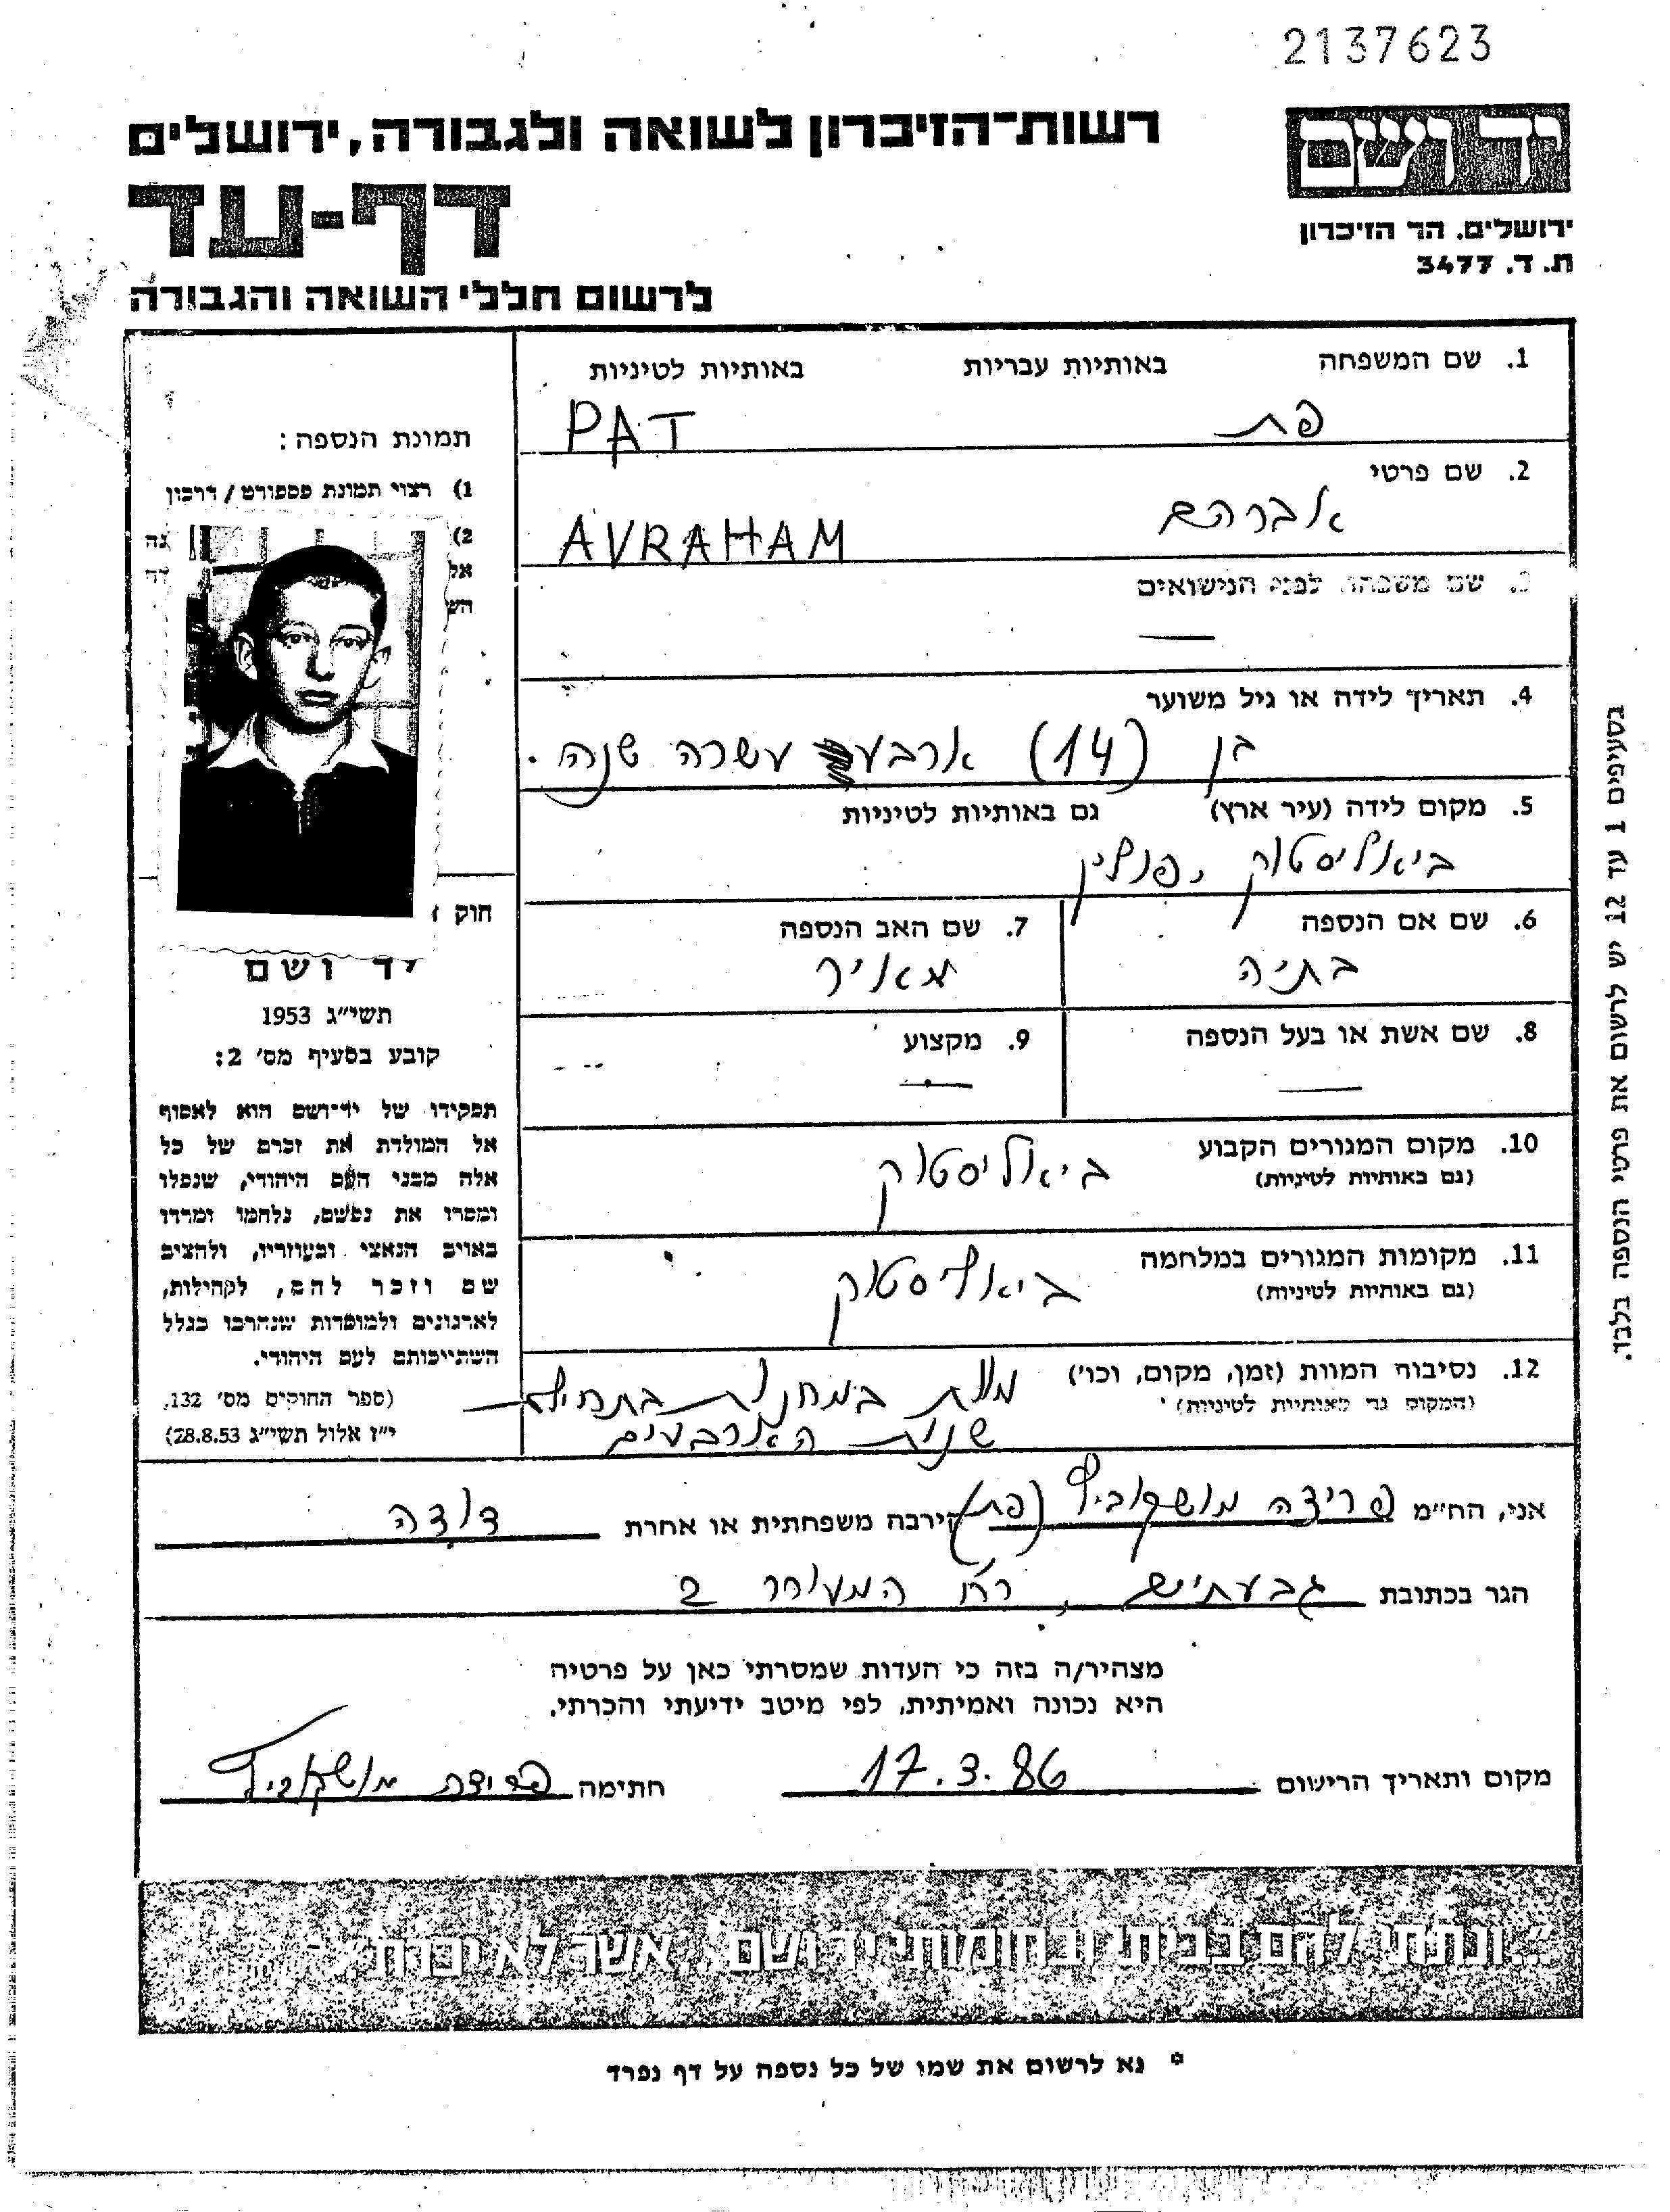 2137623
יד ושם
רשות־הזיכרון לשואה ולגבורה, ירושלים
דף-עד
ירושלים. הר הזיכרון
ת. ד. 3477
לרשום חללי השואה והגבורה
1. שם המשפחה באותיות עבריות באותיות לטיניות
פת PAT
2. שם פרטי
אברהם AVRAHAM
3. שם משפחה לפני הנישואים
—
4. תאריך לידה או גיל משוער
בן (14) ארבע עשרה שנה.
5. מקום לידה (עיר ארץ) גם באותיות לטיניות
ביאליסטוק, פולין
6. שם אם הנספה 7. שם האב הנספה
בתיה מאיר
8. שם אשת או בעל הנספה 9. מקצוע
— —
10. מקום המגורים הקבוע
(גם באותיות לטיניות)
ביאליסטוק
11. מקומות המגורים במלחמה
(גם באותיות לטיניות)
ביאליסטוק
12. נסיבות המוות (זמן, מקום, וכו')
(המקום גם באותיות לטיניות)
מות במחנות בתחילת
שנות הארבעים
תמונת הנספה:
1) רצוי תמונת פספורט / דרכון
2) נה
אל דה
הש
חוק
יד ושם
תשי"ג 1953
קובע בסעיף מס' 2:
תפקידו של יד־ושם הוא לאסוף
אל המולדת את זכרם של כל
אלה מבני העם היהודי, שנפלו
ומסרו את נפשם, נלחמו ומרדו
באויב הנאצי ובעוזריו, ולהציב
שם וזכר להם, לקהילות,
לארגונים ולמוסדות שנחרבו בגלל
השתייכותם לעם היהודי.
(ספר החוקים מס' 132,
י"ז אלול תשי"ג 28.8.53)
אני, הח"מ פרידה מושקוביץ (פת) קירבה משפחתית או אחרת דודה
הגר בכתובת גבעתיים, רח' המעורר 2
מצהיר/ה בזה כי העדות שמסרתי כאן על פרטיה
היא נכונה ואמיתית, לפי מיטב ידיעתי והכרתי.
מקום ותאריך הרישום 17.3.86 חתימה פרידה מושקוביץ
"...ונתתי להם בביתי ובחומותי יד ושם... אשר לא יכרת"
* נא לרשום את שמו של כל נספה על דף נפרד
בסעיפים 1 עד 12 יש לרשום את פרטי הנספה בלבד.